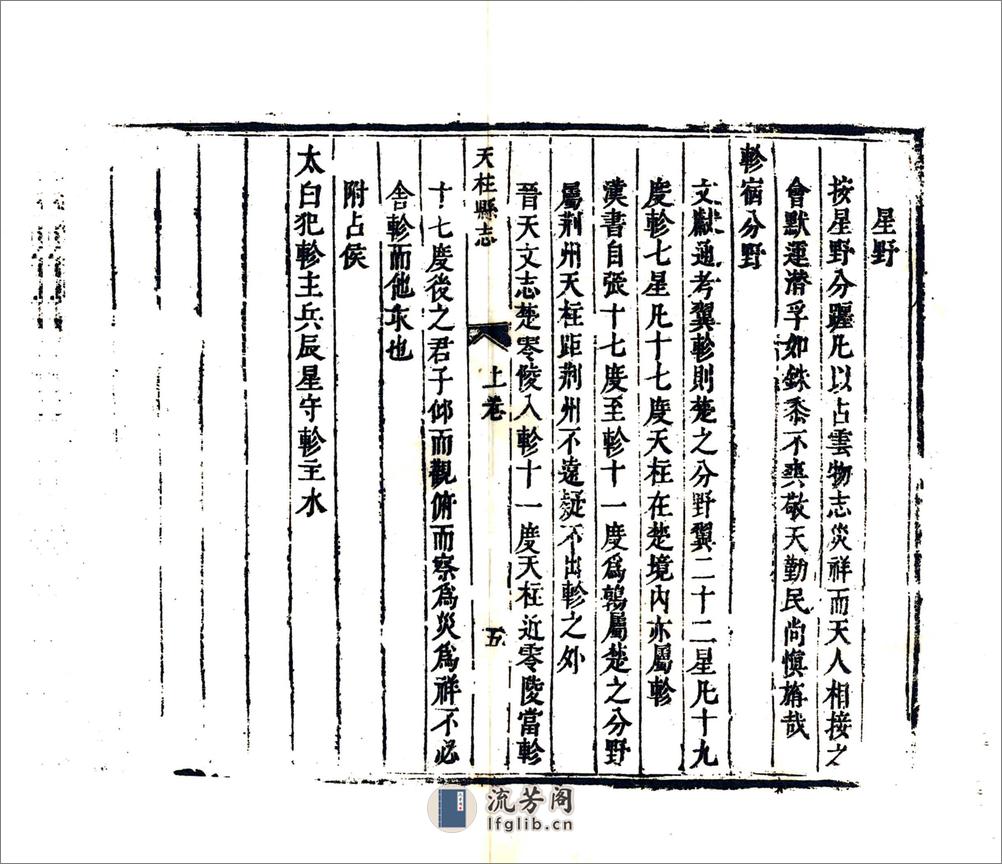 星野
按星野分躔凡以占雲物志災祥而天人相接之
會默運潛孚如銖黍不爽敬天勤民尚愼旃哉
軫宿分野
文獻通考翼軫則楚之分野翼二十二星凡十九
度軫七星凡十七度天柱在楚境內亦屬軫
漢書自張十七度至軫十一度爲鶉屬楚之分野
屬荆州天柱距荆州不遠疑不出軫之外
晉天文志楚零陵入軫十一度天柱近零陵當軫
天柱縣志
上卷
五
十七度後之君子仰而觀俯而察爲災爲祥不必
舍軫而他求也
附占侯
太白犯軫主兵辰星守軫主水
流芳阁
lfglib.cn